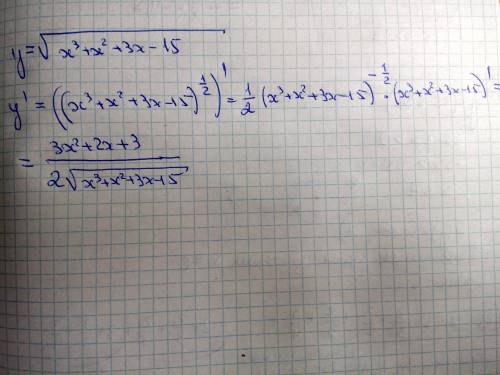 y = √(x³+x²+3x-15)
y' = ((x³+x²+3x-15)^(1/2))' = 1/2 (x³+x²+3x-15)^(-1/2) · (x³+x²+3x-15)' =
= (3x²+2x+3) / (2√(x³+x²+3x-15))